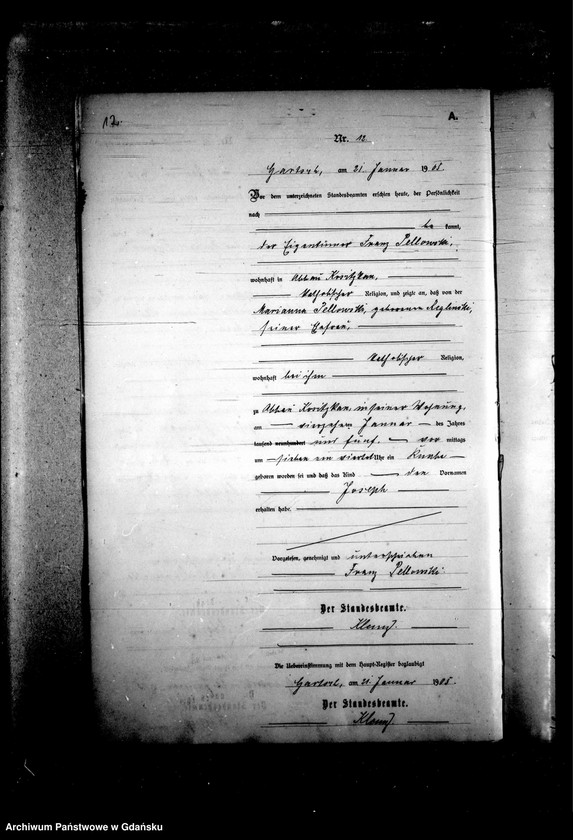 12.
A.
Nr. 12.
am 21 Januar 19
Vor dem unterzeichneten Standesbeamten erschien heute, der Persönlichkeit
nach
be kannt,
der Eigentümer Franz Pellowski,
wohnhaft in Abbau
Katholischer Religion, und zeigte an, daß von der
Marianna Pellowski, geborenen
seiner Ehefrau,
Katholischer Religion,
wohnhaft bei ihm
zu Abbau in seiner Wohnung,
am vierzehn Januar des Jahres
tausend neunhundert und fünf, vor mittags
um sieben ein viertel Uhr ein Knabe
geboren worden sei und daß das Kind den Vornamen
Joseph
erhalten habe.
Vorgelesen, genehmigt und unterschrieben
Franz Pellowski.
Der Standesbeamte.
Die Uebereinstimmung mit dem Haupt-Register beglaubigt
am 21 Januar 1905.
Der Standesbeamte.
Archiwum Państwowe w Gdańsku